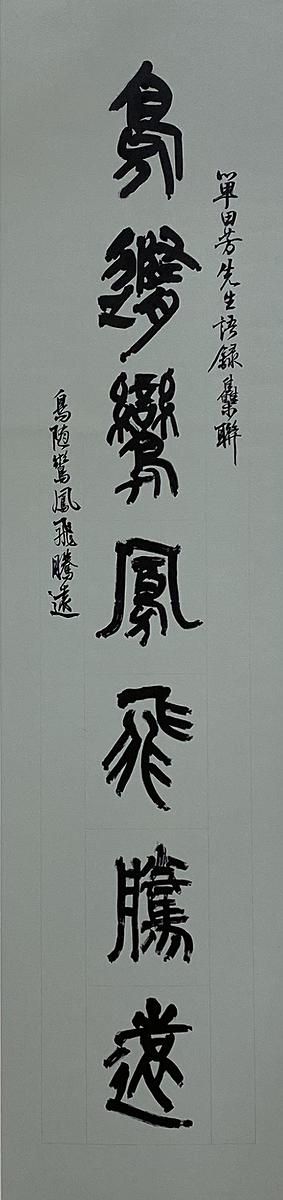 單田芳先生語錄集聯
鳥隨鸞鳳飛騰遠
鳥随鸞鳳飛騰遠